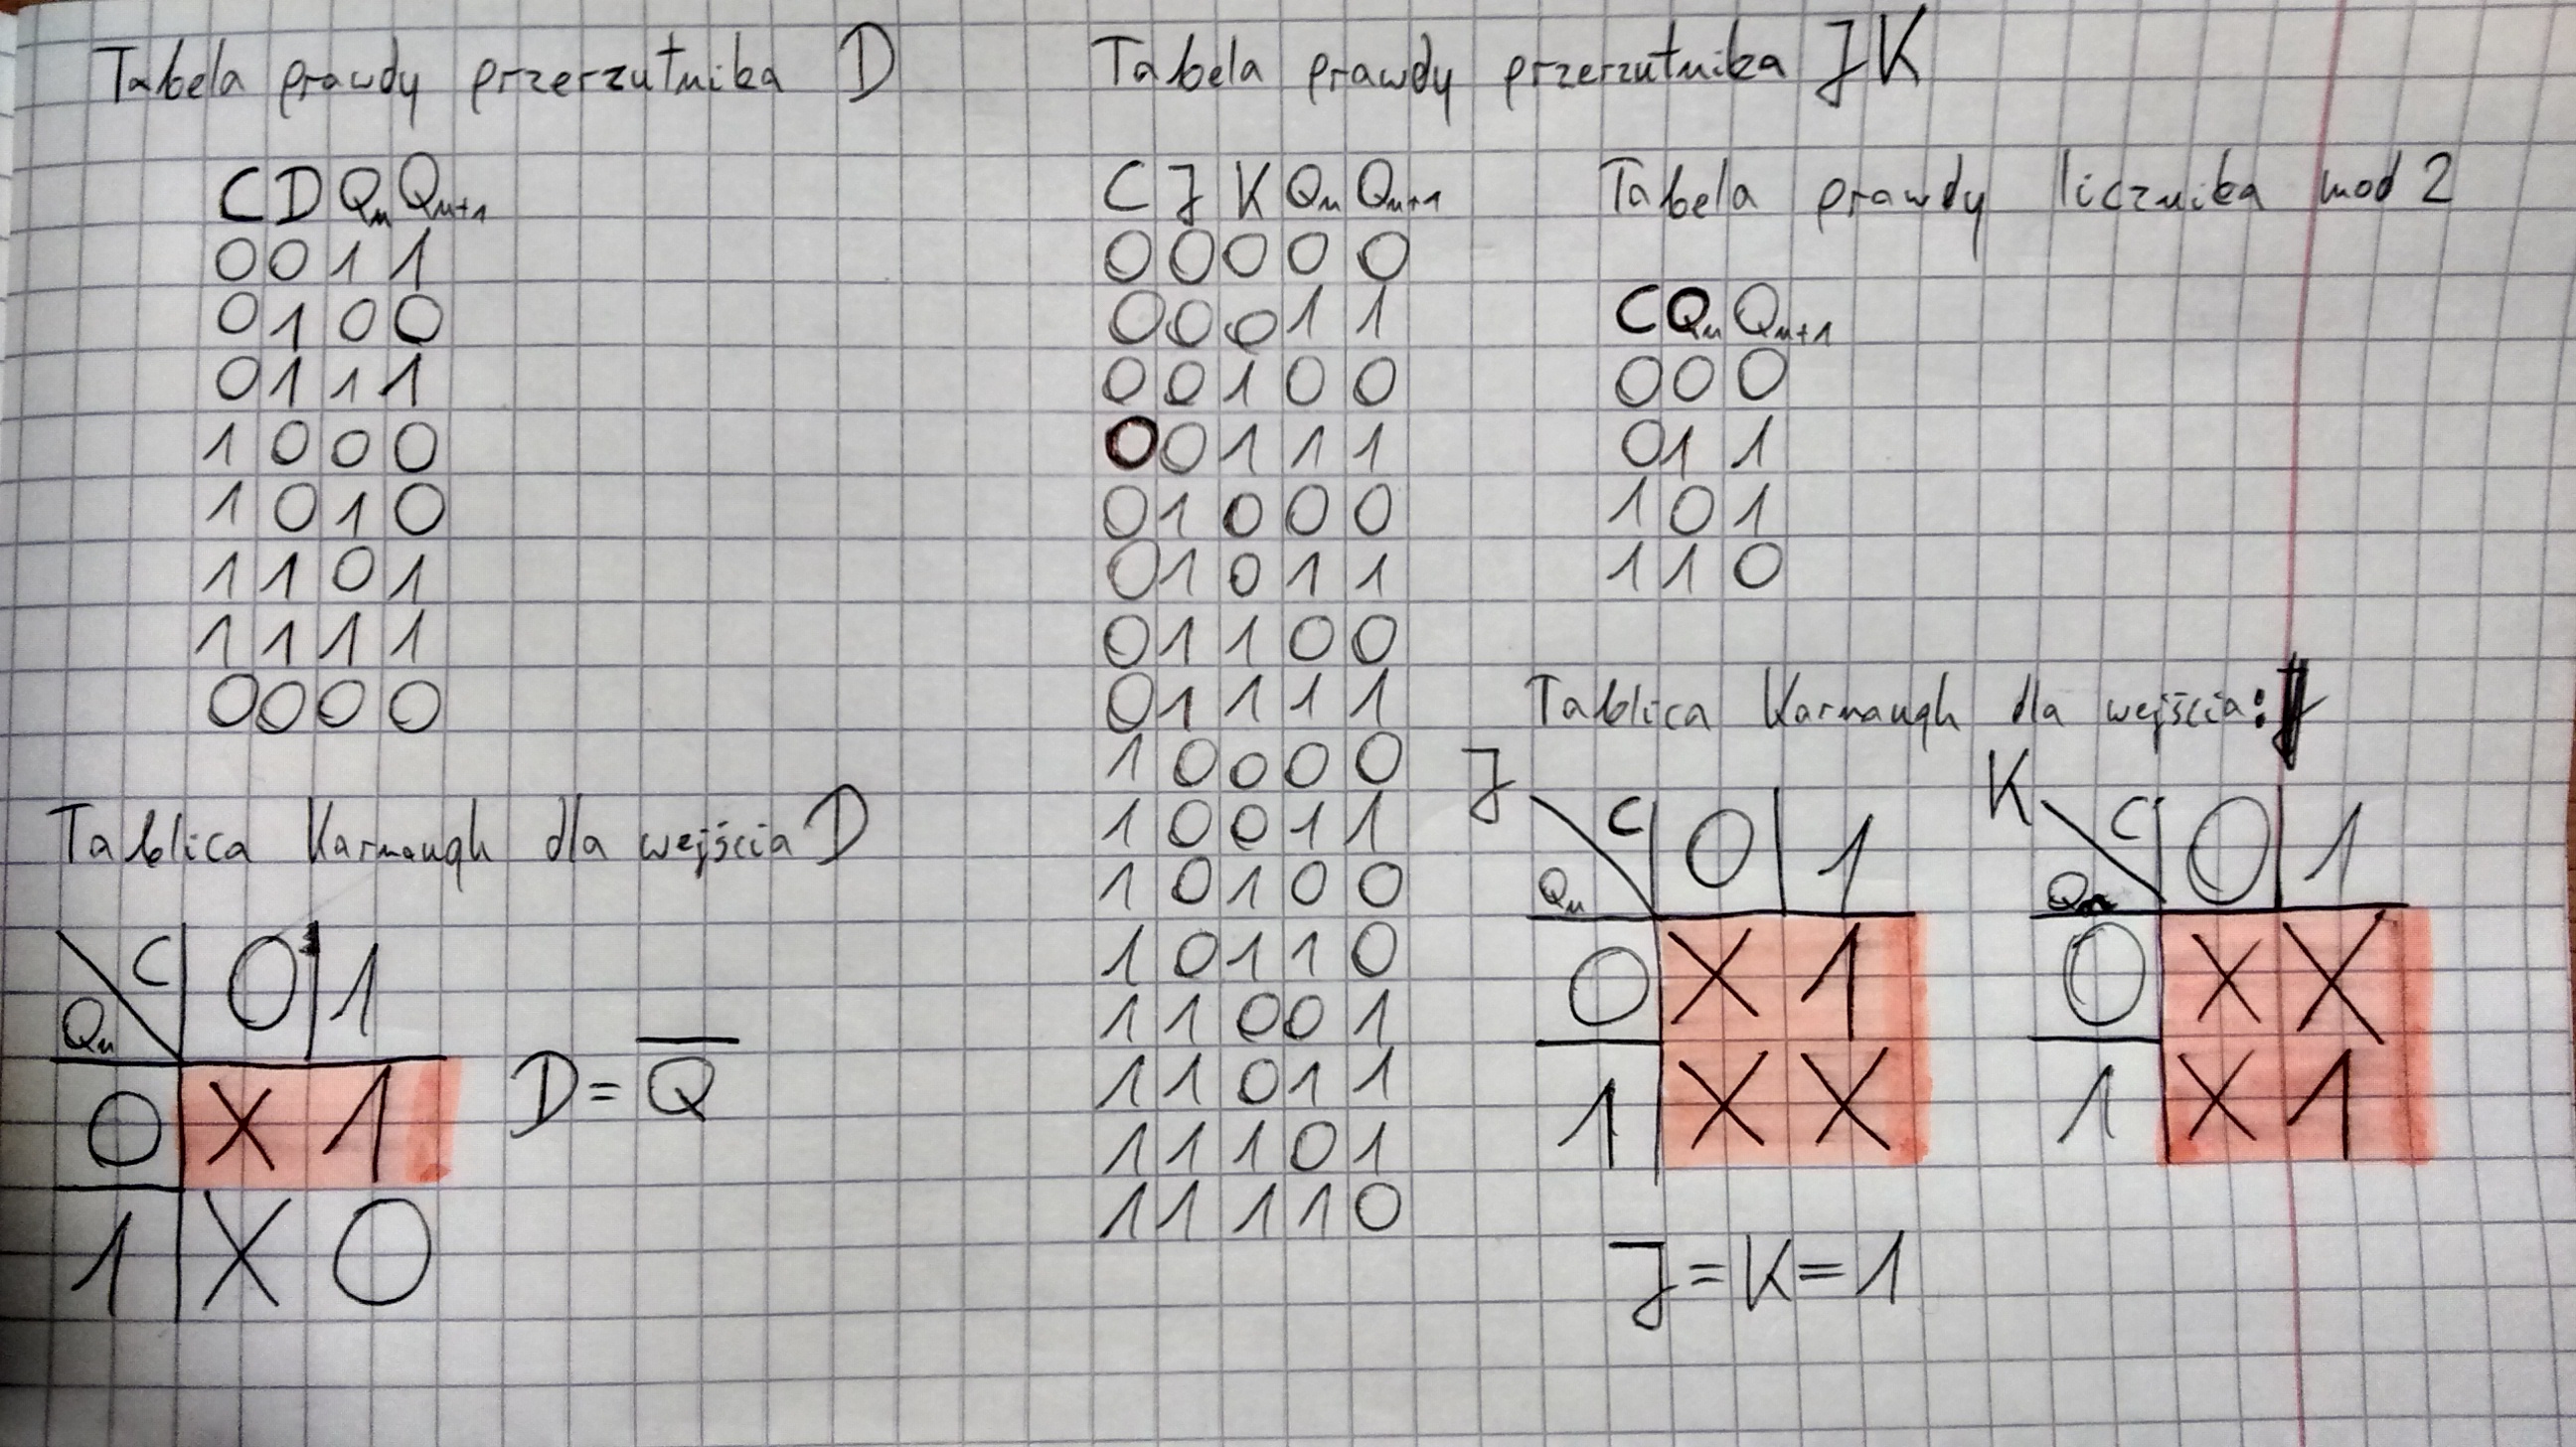 Tabela prawdy przerzutnika D
C D Qn Qn+1
0 0 1 1
0 1 0 0
0 1 1 1
1 0 0 0
1 0 1 0
1 1 0 1
1 1 1 1
0 0 0 0
Tablica Karnaugh dla wejścia D
C 0 1
Qn
0 X 1
1 X 0
D = Q̅
Tabela prawdy przerzutnika JK
C J K Qn Qn+1
0 0 0 0 0
0 0 0 1 1
0 0 1 0 0
0 0 1 1 1
0 1 0 0 0
0 1 0 1 1
0 1 1 0 0
0 1 1 1 1
1 0 0 0 0
1 0 0 1 1
1 0 1 0 0
1 0 1 1 0
1 1 0 0 1
1 1 0 1 1
1 1 1 0 1
1 1 1 1 0
Tabela prawdy licznika mod 2
C Qn Qn+1
0 0 0
0 1 1
1 0 1
1 1 0
Tablica Karnaugh dla wejścia:
J
C 0 1
Qn
0 X 1
1 X X
K
C 0 1
Qn
0 X X
1 X 1
J = K = 1